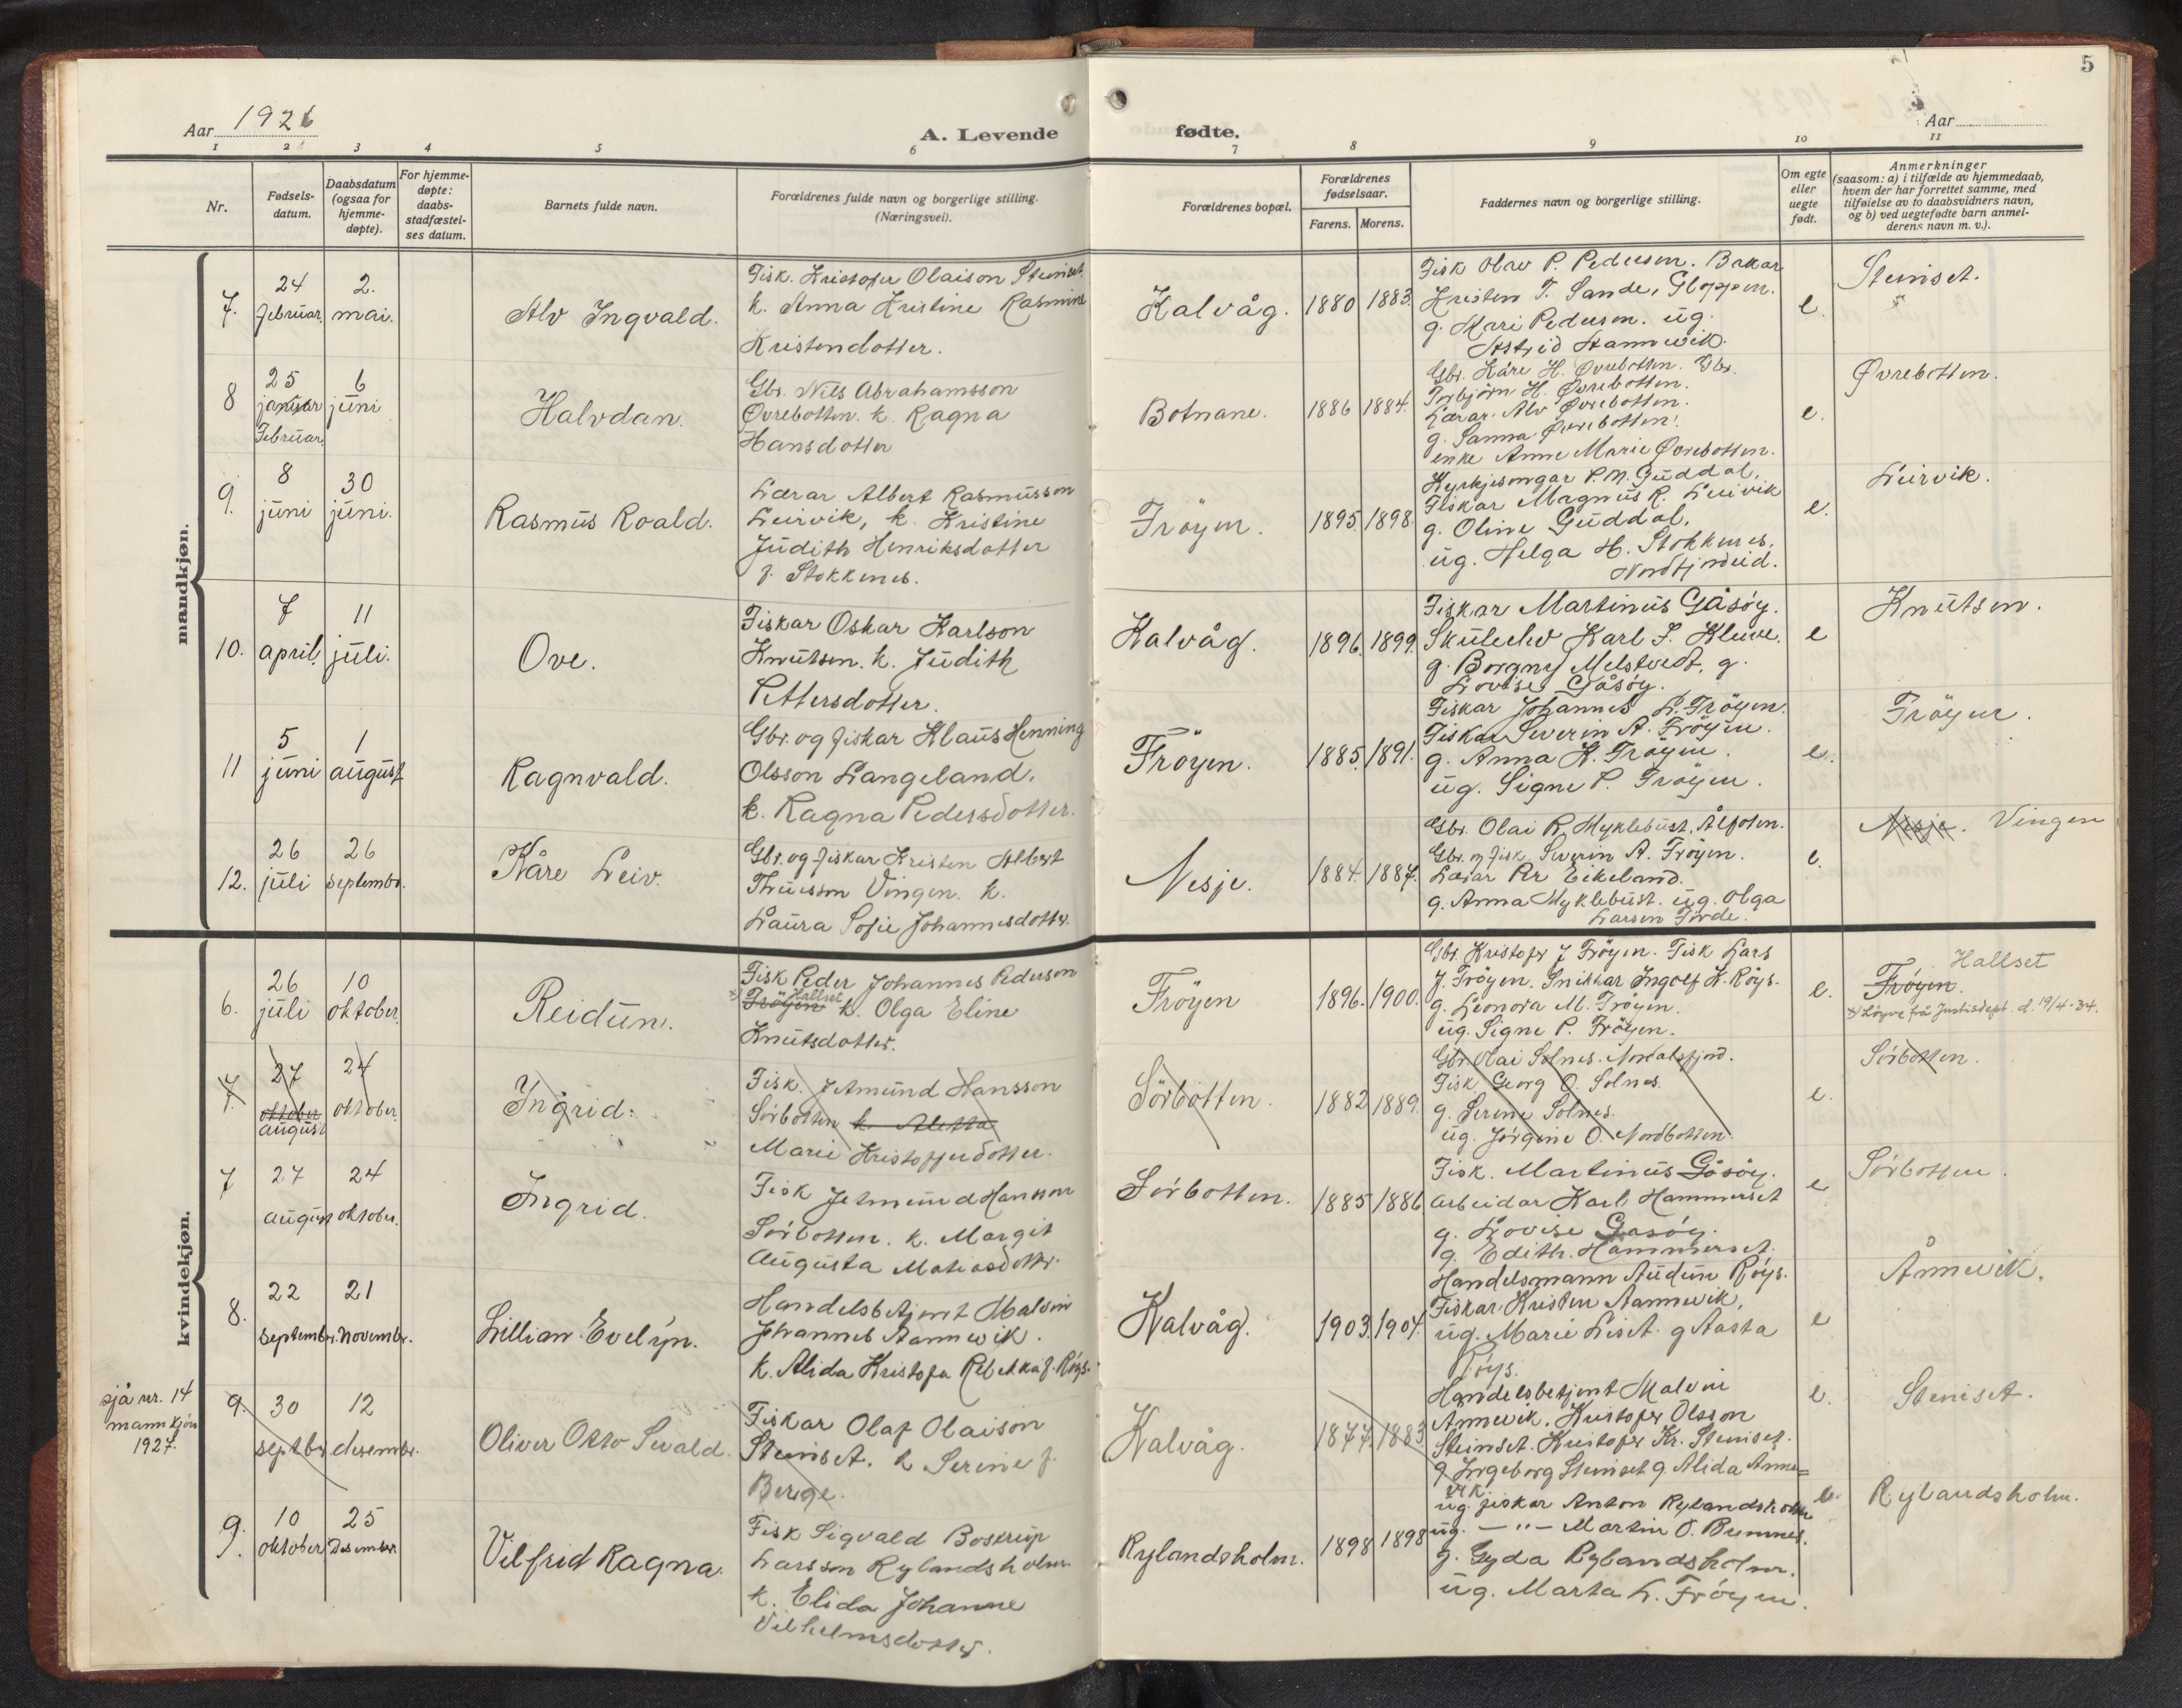 5
Aar 1926
A. Levende fødte.
Aar
1 2 3 4 5 6 7 8 9 10 11
Nr.
Fødsels-
datum.
Daabsdatum
(ogsaa for
hjemme-
døpte).
For hjemme-
døpte:
daabs-
stadfæstel-
ses datum.
Barnets fulde navn.
Forældrenes fulde navn og borgerlige stilling.
(Næringsvei).
Forældrenes bopæl.
Forældrenes
fødselsaar.
Farens. Morens.
Faddernes navn og borgerlige stilling.
Om egte
eller
uegte
født.
Anmerkninger
(saasom: a) i tilfælde av hjemmedaab,
hvem der har forrettet samme, med
tilføielse av to daabsvidners navn,
og b) ved uegtefødte barn anmel-
derens navn m. v.).
mandkjøn.
7.
24
februar.
2.
mai.
Alv Ingvald.
Fisk. Kristofer Olaison Steinset.
k. Anna Kristine Rasmine
Kristendotter.
Kalvåg.
1880 1883.
Fisk Olav P. Pedersen. Bakar
Kristen T. Sande, Gloppen.
g. Mari Pedersen. ug.
Astrid Hannevik.
e.
Steinset.
8
25
januar
Februar.
6
juni
Halvdan.
Gbr. Nils Abrahamsson
Øvrebotten. k. Ragna
Hansdotter
Botnane.
1886 1884.
Gbr. Kåre H. Øvrebotten. Gbr.
Torbjørn H. Øvrebotten.
Lærar. Alv Øvrebotten.
g. Sanna Øvrebotten.
enke Anne Marie Øvrebotten.
e.
Øvrebotten.
9.
8
juni
30
juni.
Rasmus Roald.
Lærar Albert Rasmusson
Leirvik, k. Kristine
Judith Henriksdotter
f. Stokkenes.
Frøyen.
1895. 1898.
Kyrkjesongar P. M. Guddal,
Fiskar Magnus R. Leirvik
g. Oline Guddal,
ug. Helga H. Stokkenes,
Nordfjordeid.
e.
Leirvik.
10.
7
april.
11
juli.
Ove.
Fiskar Oskar Karlson
Knutsen. k. Judith
Pettersdotter.
Kalvåg.
1896. 1899.
Fiskar Martinus Gåsøy.
Skuleelev Karl S. Kleive.
g. Borgny Melstvedt, g.
Lovise Gåsøy.
e
Knutsen.
11
5
juni
1
august
Ragnvald.
Gbr. og fiskar Klaus Henning
Olsson Langeland,
k. Ragna Pedersdotter.
Frøyen.
1885. 1891.
Fiskar Johannes L. Frøyen.
Fiskar Severin A. Frøyen.
g. Anna K. Frøyen.
ug. Signe P. Frøyen.
e.
Frøyen.
12.
26
juli
26
septembr.
Kåre Leiv.
Gbr. og fiskar Kristen Albert
Thuesson Vingen. k.
Laura Sofie Johannesdotter.
Nesje.
1884. 1887.
Gbr. Olai R. Myklebust, Ålfoten.
Gbr. og fisk. Severin A. Frøyen.
Lærar Per Eikeland.
g. Anna Myklebust. ug. Olga
Larsen Førde.
e.
Nesje. Vingen
kvindekjøn.
6.
26
juli
10
oktober.
Reidun.
Fisk Peder Johannes Pederson
x) Frøyen Hallset k. Olga Eline
Knutsdotter.
Frøyen
1896. 1900.
Gbr. Kristofer J Frøyen. Fisk Lars
J. Frøyen. Snikkar Ingolf K. Røys.
g. Leonora M. Frøyen.
ug. Signe P. Frøyen.
e.
Hallset
Frøyen.
x) Løyve frå Justisdept. d. 19/4-34.
7.
27
oktober
august
24
oktober.
Ingrid.
Fisk. Jetmund Hansson
Sørbotten k. Aletta
Marie Kristofferdotter.
Sørbotten.
1882 1889.
Gbr. Olai Solnes. Nordalsfjord.
Fisk Georg O. Solnes.
g. Serine Solnes.
ug. Jørgine O. Nordbotten.
e.
Sørbotten.
7
27
august
24
oktober.
Ingrid.
Fisk Jetmund Hansson
Sørbotten. k. Margit
Augusta Matiasdotter.
Sørbotten.
1885 1886
Fisk. Martinus Gåsøy.
arbeidar Karl Hammerset
g. Lovise Gåsøy.
g. Edith. Hammerset.
e
Sørbotten.
8.
22
septembr.
21
novembr.
Lillian Evelyn.
Handelsbetjent Malvin
Johannes Aannevik.
k. Alida Kristofa Rebekka f. Røys.
Kalvåg.
1903. 1904.
Handelsmann Audun Røys.
Fiskar Kristen Aannevik,
ug. Marie Liset. g Aasta
Røys.
e
Ånnevik.
sjå nr. 14
mannkjøn
1927.
9.
30
septbr.
12
desembr.
Oliver Otto Sevald.
Fiskar Olaf Olaison
Steinset. k Serine f.
Berge.
Kalvåg.
1877. 1883
Handelsbetjent Malvin
Annevik, Kristofer Olsson
Steinset. Kristofer Kr. Steinset.
g Ingeborg Steinset g. Alida Anne=
vik
e.
Steinset.
9.
10
oktober
25
Desember
Vilfrid Ragna.
Fisk Sigvald Bostrup
Larsson Rylandsholm
k. Elida Johanne
Vilhelmsdotter.
Rylandsholm.
1898 1898
ug. fiskar Anton Rylandsholm
ug. — " — Martin O. Bremnes.
g. Gyda Rylandsholm.
ug. Marta L. Frøyen.
e.
Rylandsholm.